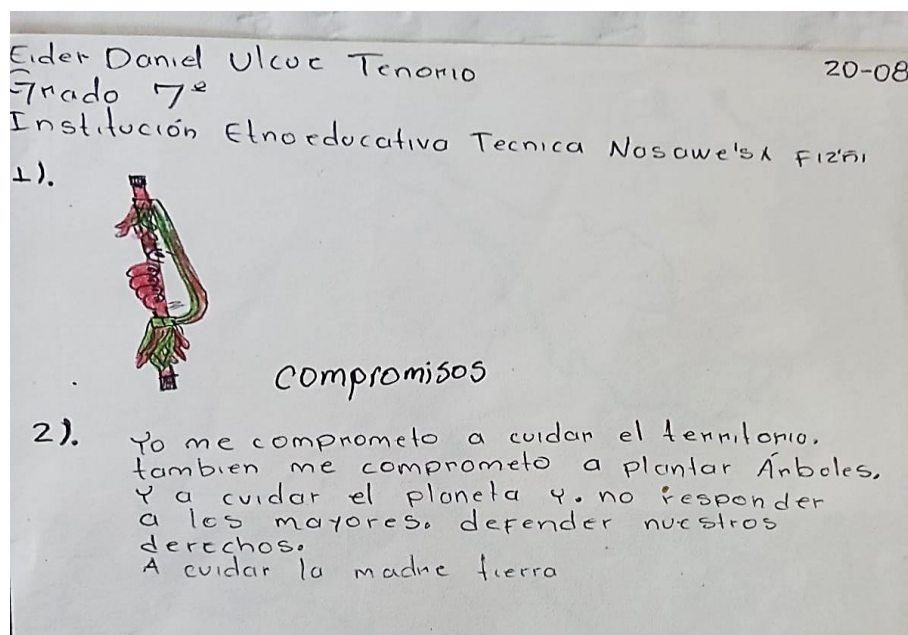 Eider Daniel Ulcue Tenorio 20-08
Grado 7º
Institución Etnoeducativa Tecnica Nasawe'sx Fiz'ñi
1).
compromisos
2). Yo me comprometo a cuidar el territorio.
tambien me comprometo a plantar Árboles,
Y a cuidar el planeta y. no responder
a los mayores. defender nuestros
derechos.
A cuidar la madre tierra